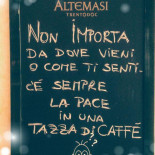 ALTEMASI
TRENTODOC
NON IMPORTA
DA DOVE VIENI
O COME TI SENTI..
C'È SEMPRE
LA PACE
IN UNA
TAZZA DI CAFFÈ